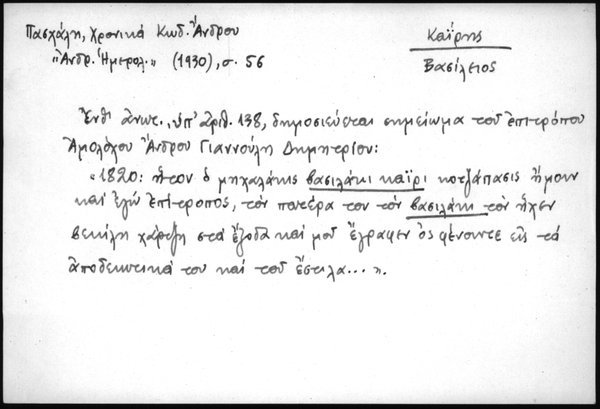 Πασχάλη, Χρονικά Κωδ. Ἄνδρου
Καΐρης
"Ἀνδρ. Ἡμερολ." (1930), σ. 56
Βασίλειος
Ἔνθ' ἀνωτ., ὑπ' ἀριθ. 138, δημοσιεύεται σημείωμα τοῦ ἐπιτρόπου
Ἀμολόχου Ἄνδρου Γιαννούλη Δημητρίου:
"1820: ἦτον ὁ μηχαλάκης βασιλάκι καΐρι κοτζάπασις ἤμουν
καὶ ἐγὼ ἐπίτροπος, τὸν πατέρα του τὸν βασιλάκι τὸν ἦχεν
βεκίλη χάρεξη στὰ ἔξοδα καὶ μοῦ ἔγραψεν ὁς φένουντε εἰς τὰ
ἀποδεικτικά του καὶ τοῦ ἔστιλα... ".